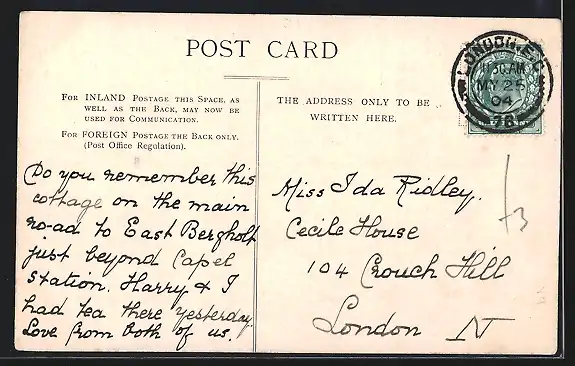 POST CARD
FOR INLAND POSTAGE THIS SPACE, AS
WELL AS THE BACK, MAY NOW BE
USED FOR COMMUNICATION.
FOR FOREIGN POSTAGE THE BACK ONLY.
(Post Office Regulation).
Do you remember this
cottage on the main
ro-ad to East Bergholt
just beyond Capel
Station. Harry & I
had tea there yesterday.
Love from both of us.
THE ADDRESS ONLY TO BE
WRITTEN HERE.
Miss Ida Ridley.
Cecile House
104 Crouch Hill
London N
LONDON. E.C
MY 25
04